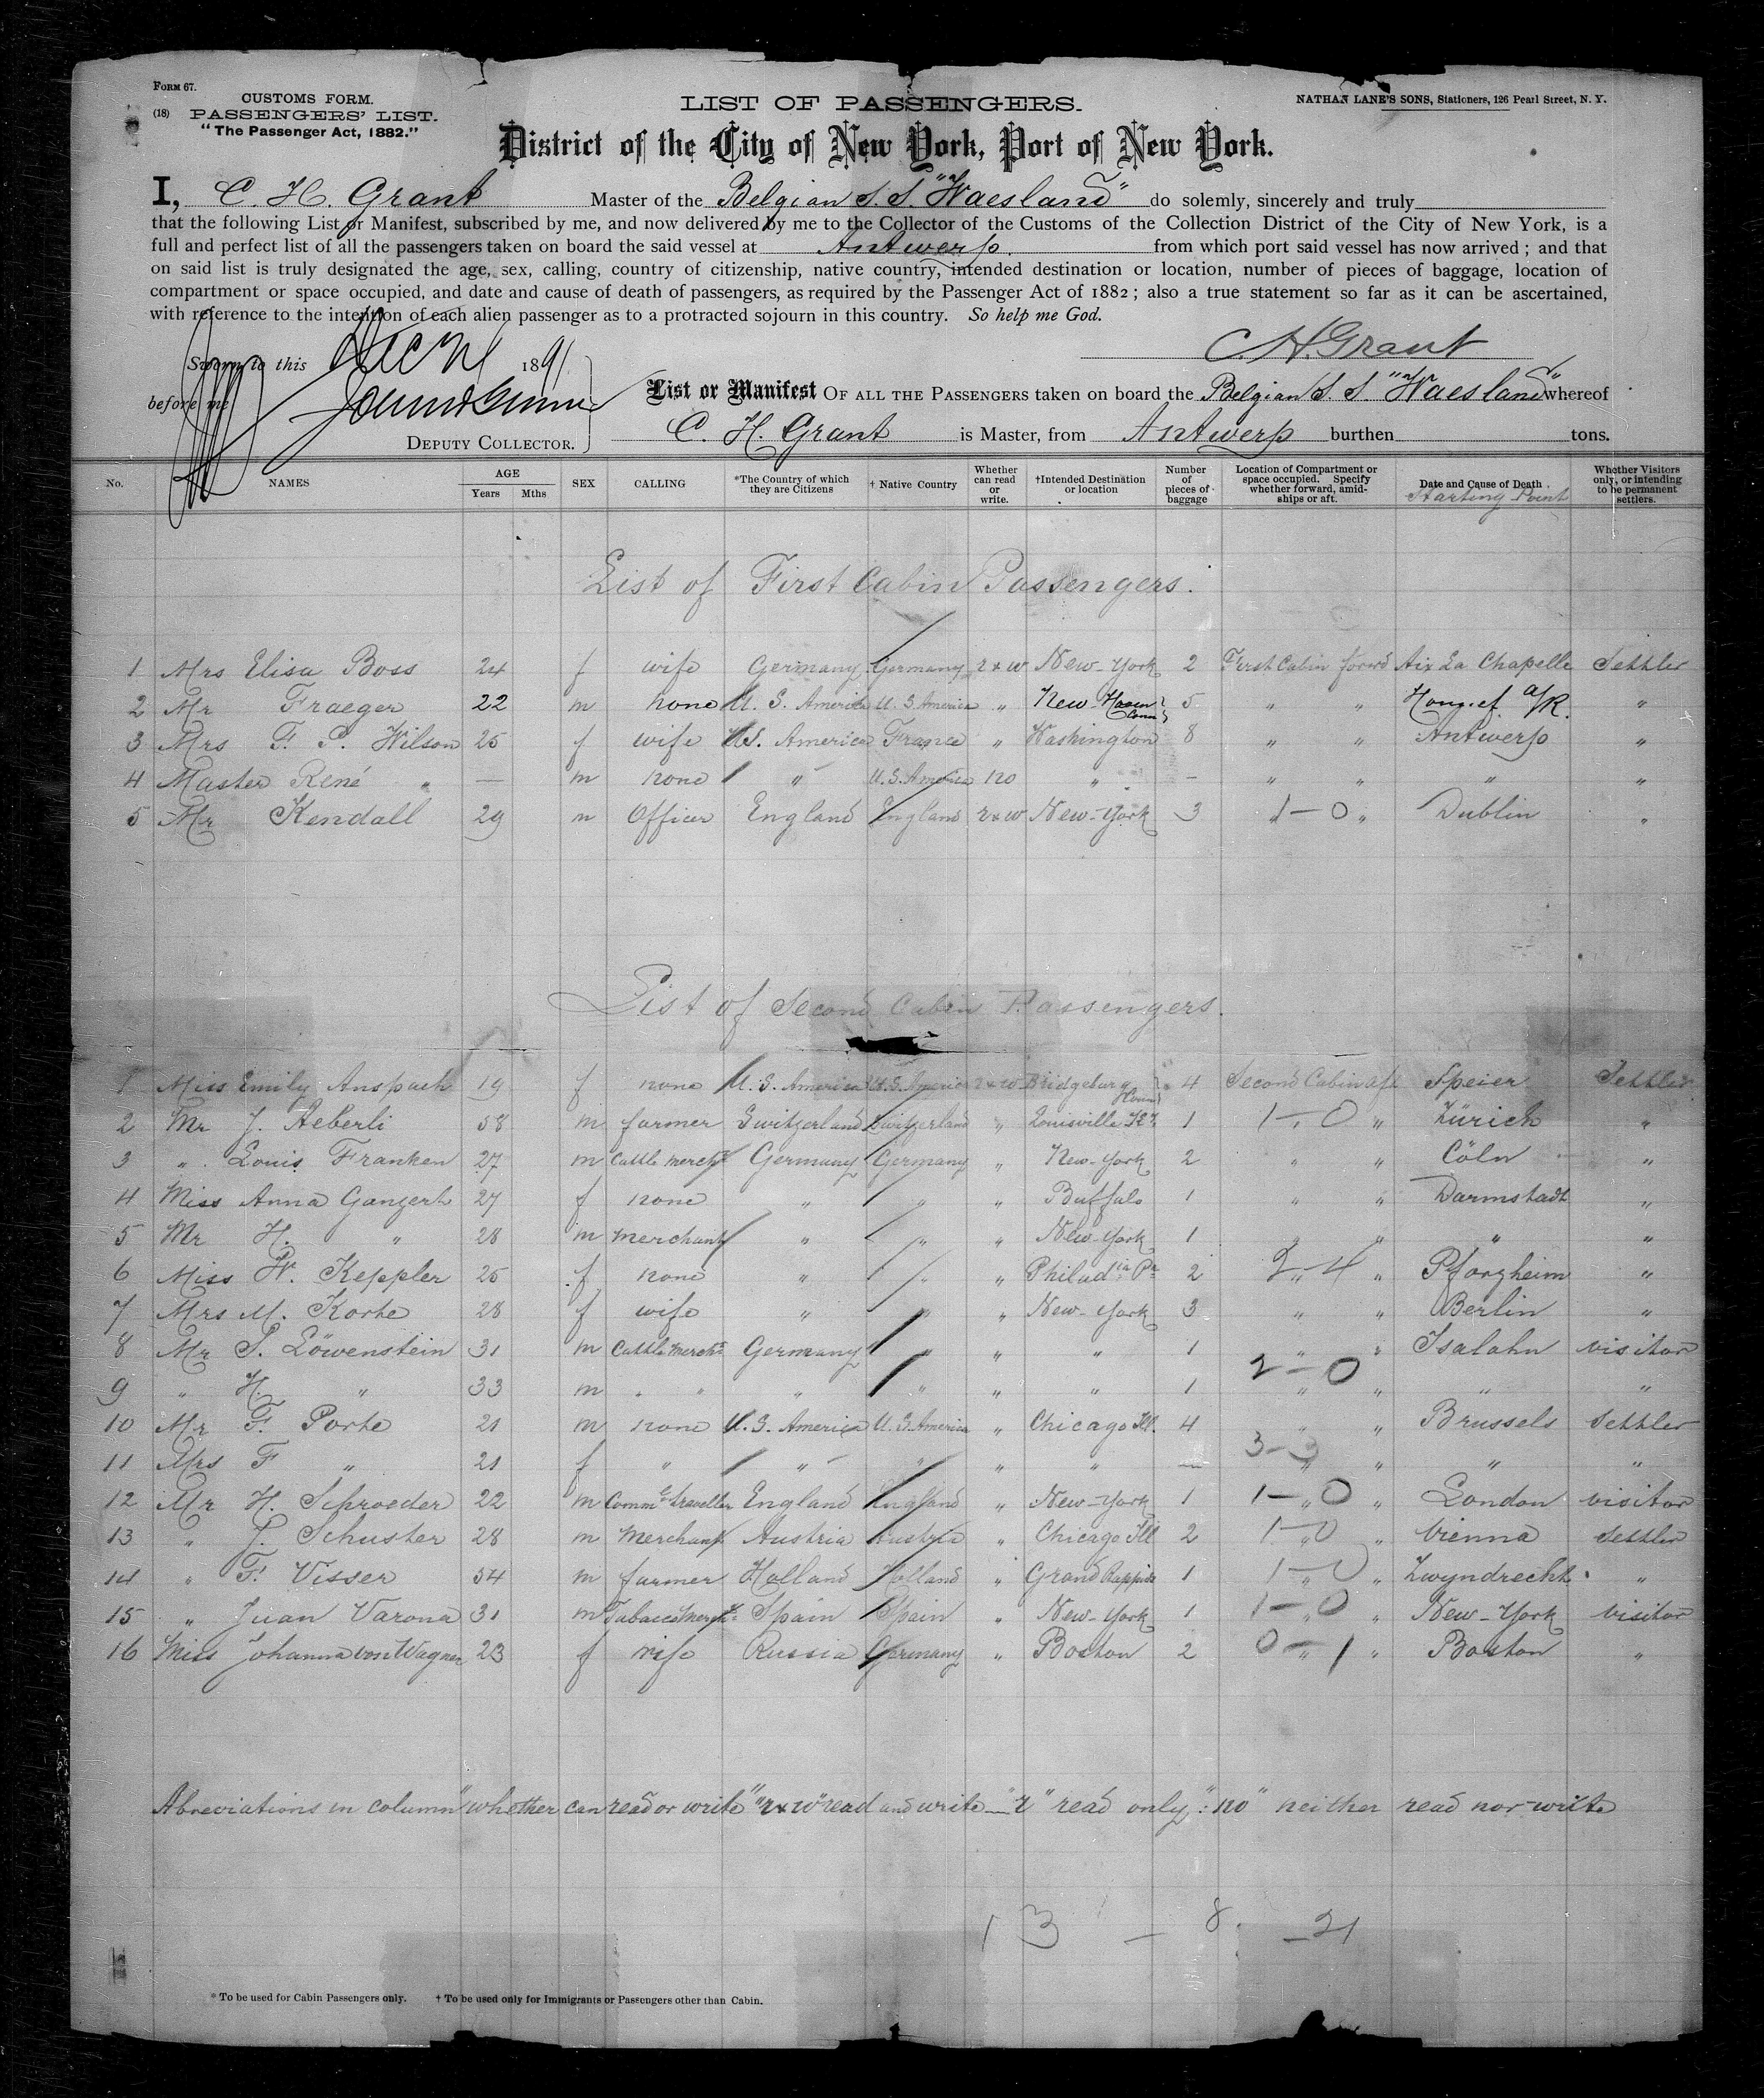 Form 67.
(18)
CUSTOMS FORM.
PASSENGERS' LIST.
"The Passenger Act, 1882."
LIST OF PASSENGERS.
NATHAN LANE'S SONS, Stationers, 126 Pearl Street, N. Y.
District of the City of New York, Port of New York.
I, C. H. Grant Master of the Belgian S. S. "Waesland" do solemly, sincerely and truly
that the following List or Manifest, subscribed by me, and now delivered by me to the Collector of the Customs of the Collection District of the City of New York, is a
full and perfect list of all the passengers taken on board the said vessel at Antwerp. from which port said vessel has now arrived; and that
on said list is truly designated the age, sex, calling, country of citizenship, native country, intended destination or location, number of pieces of baggage, location of
compartment or space occupied, and date and cause of death of passengers, as required by the Passenger Act of 1882; also a true statement so far as it can be ascertained,
with reference to the intention of each alien passenger as to a protracted sojourn in this country. So help me God.
C. H. Grant
Sworn to this Dec 1891
before me
DEPUTY COLLECTOR.
List or Manifest OF ALL THE PASSENGERS taken on board the Belgian S. S. "Waesland" whereof
C. H. Grant is Master, from Antwerp burthen tons.
No. NAMES AGE Years Mths SEX CALLING *The Country of which they are Citizens † Native Country Whether can read or write. †Intended Destination or location Number of pieces of baggage Location of Compartment or space occupied. Specify whether forward, amidships or aft. Date and Cause of Death. Starting Point Whether Visitors only, or intending to be permanent settlers.
List of First Cabin Passengers.
1 Mrs Elisa Boss 24 f wife Germany Germany r & w New-York 2 First Cabin forwd Aix La Chapelle Settler
2 Mr Fraeger 22 m none U. S. America U. S. America " New-Haven Conn 5 " " Honnef a/R. "
3 Mrs F. P. Wilson 25 f wife U.S. America France " Washington 8 " " Antwerp "
4 Master René " — m none " U. S. America no " - " " " "
5 Mr Kendall 29 m Officer England England r & w New-York 3 1-0 " Dublin "
List of Second Cabin Passengers.
1 Miss Emily Anspach 19 f none U. S. America U. S. America r & w Bridgeburg Conn 4 Second Cabin aft Speier Settler
2 Mr J. Aeberli 58 m farmer Switzerland Switzerland " Louisville Ky 1 1-0 " Zürich "
3 " Louis Franken 27 m Cattle mercht Germany Germany " New-York 2 " " Cöln "
4 Miss Anna Ganzert 27 f none " " " Buffalo 1 " " Darmstadt "
5 Mr H. " 28 m merchant " " " New-York 1 " " " "
6 Miss W. Keppler 25 f none " " " Philad ia Pa 2 2-4 " Pforzheim "
7 Mrs M. Korte 28 f wife " " " New-York 3 " " Berlin "
8 Mr S. Löwenstein 31 m Cattle mercht Germany " " " 1 " " Isalohn visitor
9 " H. " 33 m " " " " " " 1 2-0 " " "
10 Mr F. Porte 21 m none U. S. America U. S. America " Chicago Ill. 4 " " Brussels Settler
11 Mrs F " 21 f " " " " " — 3-3 " " "
12 Mr H. Schroeder 22 m Comm l Traveller England England " New-York 1 1-0 " London visitor
13 " J. Schuster 28 m merchant Austria Austria " Chicago Ill 2 1-0 " Vienna Settler
14 " F. Visser 54 m farmer Holland Holland " Grand Rappids 1 1-0 " Zwyndrecht "
15 " Juan Varona 31 m Tabacco mercht Spain Spain " New-York 1 1-0 " New-York visitor
16 Miss Johanna von Wagner 23 f wife Russia Germany " Boston 2 0-1 " Boston "
Abreviations in column "whether can read or write" "r & w" read and write — "r" read only: "no" neither read nor write
13 — 8. — 21
* To be used for Cabin Passengers only. † To be used only for Immigrants or Passengers other than Cabin.